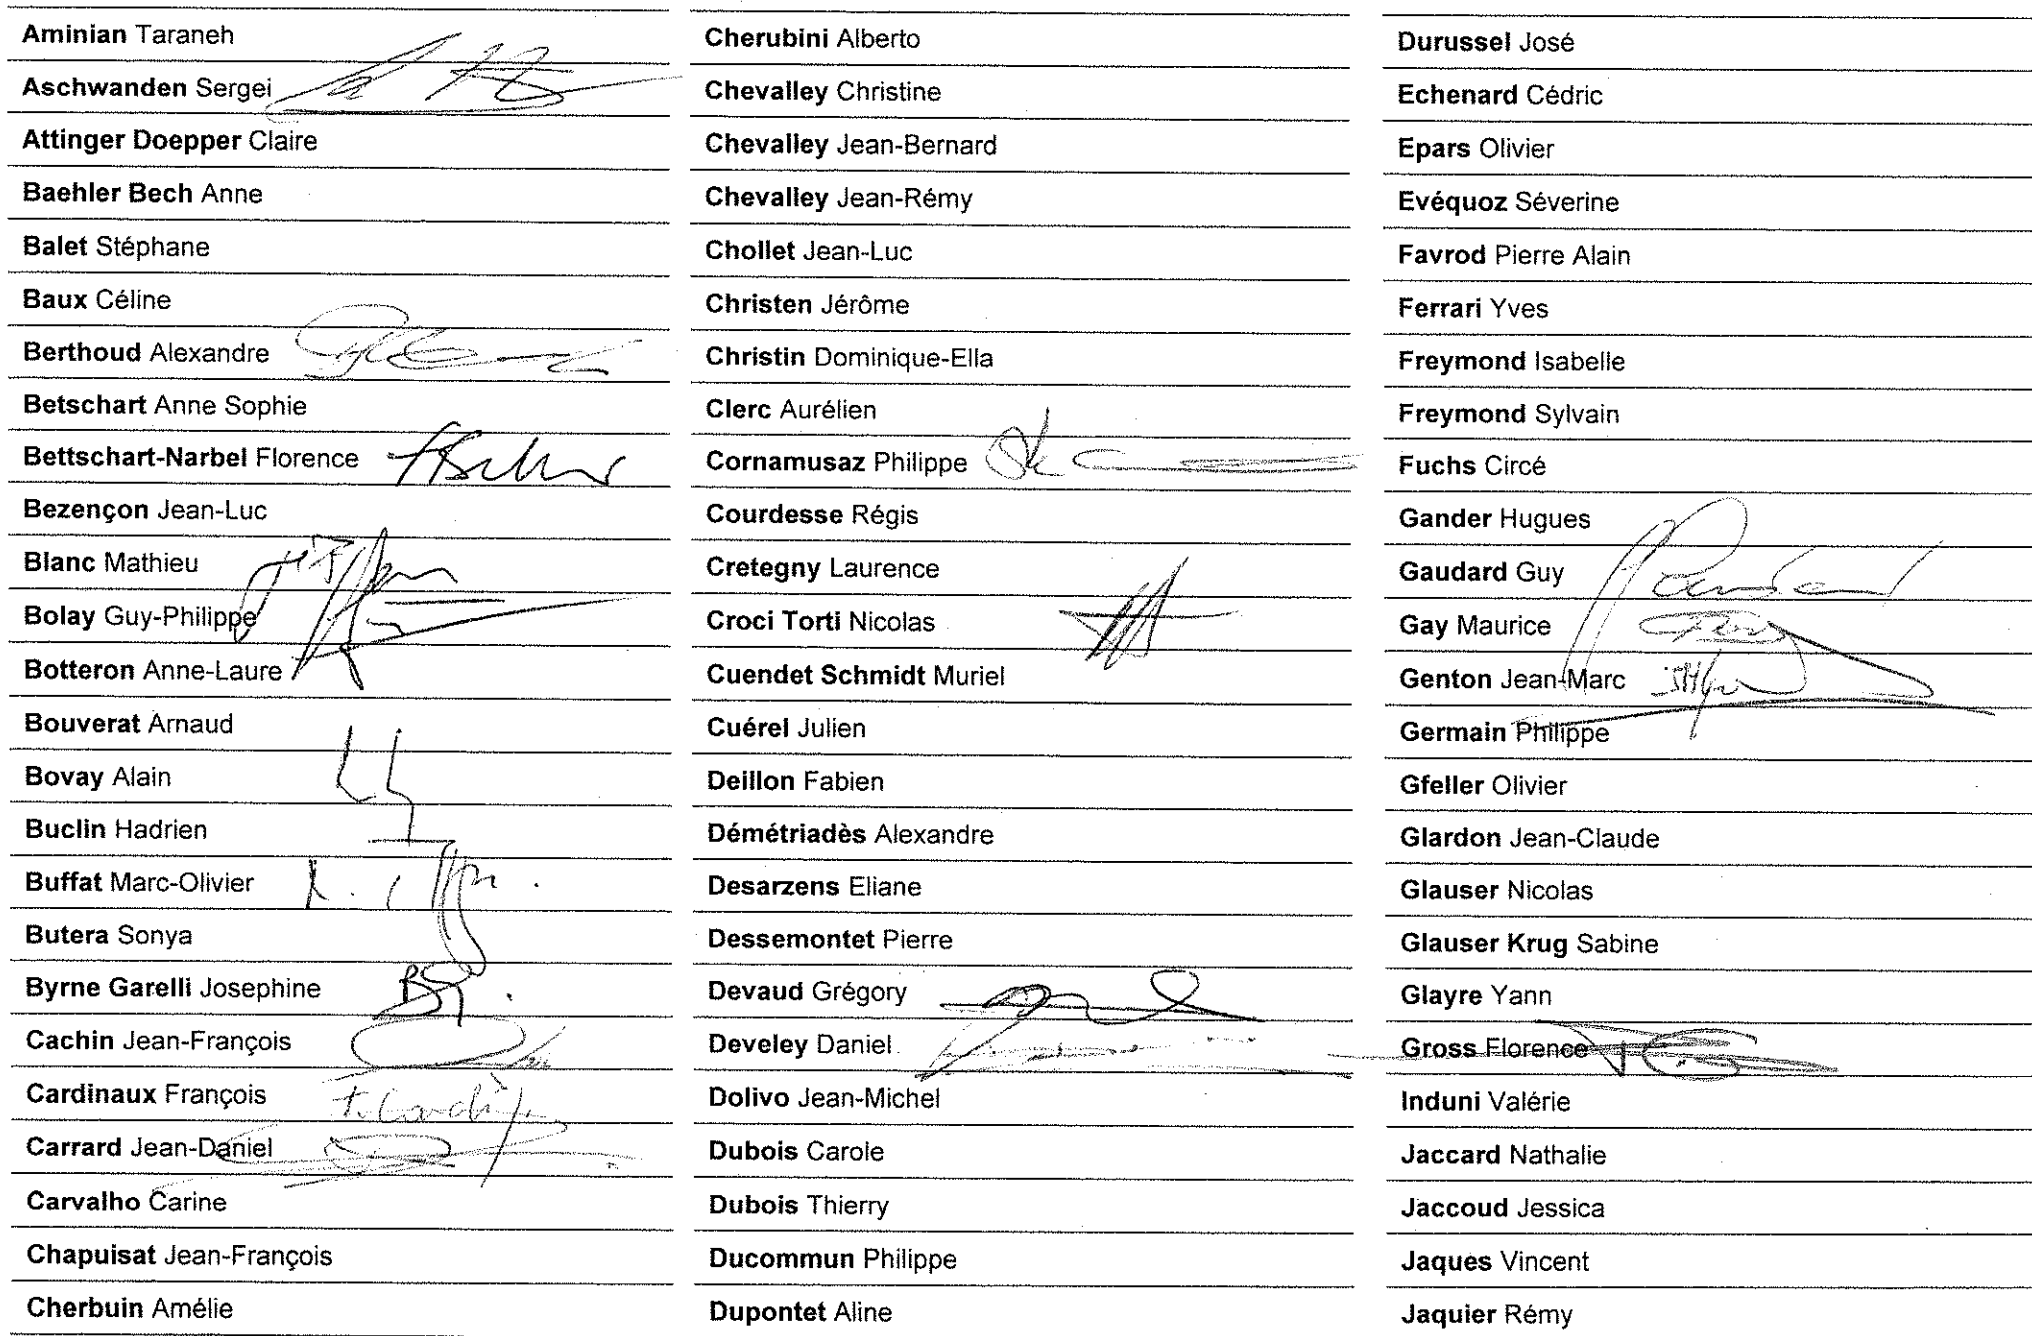 Aminian Taraneh
Aschwanden Sergei
Attinger Doepper Claire
Baehler Bech Anne
Balet Stéphane
Baux Céline
Berthoud Alexandre
Betschart Anne Sophie
Bettschart-Narbel Florence
Bezençon Jean-Luc
Blanc Mathieu
Bolay Guy-Philippe
Botteron Anne-Laure
Bouverat Arnaud
Bovay Alain
Buclin Hadrien
Buffat Marc-Olivier
Butera Sonya
Byrne Garelli Josephine
Cachin Jean-François
Cardinaux François
Carrard Jean-Daniel
Carvalho Carine
Chapuisat Jean-François
Cherbuin Amélie
Cherubini Alberto
Chevalley Christine
Chevalley Jean-Bernard
Chevalley Jean-Rémy
Chollet Jean-Luc
Christen Jérôme
Christin Dominique-Ella
Clerc Aurélien
Cornamusaz Philippe
Courdesse Régis
Cretegny Laurence
Croci Torti Nicolas
Cuendet Schmidt Muriel
Cuérel Julien
Deillon Fabien
Démétriadès Alexandre
Desarzens Eliane
Dessemontet Pierre
Devaud Grégory
Develey Daniel
Dolivo Jean-Michel
Dubois Carole
Dubois Thierry
Ducommun Philippe
Dupontet Aline
Durussel José
Echenard Cédric
Epars Olivier
Evéquoz Séverine
Favrod Pierre Alain
Ferrari Yves
Freymond Isabelle
Freymond Sylvain
Fuchs Circé
Gander Hugues
Gaudard Guy
Gay Maurice
Genton Jean-Marc
Germain Philippe
Gfeller Olivier
Glardon Jean-Claude
Glauser Nicolas
Glauser Krug Sabine
Glayre Yann
Gross Florence
Induni Valérie
Jaccard Nathalie
Jaccoud Jessica
Jaques Vincent
Jaquier Rémy